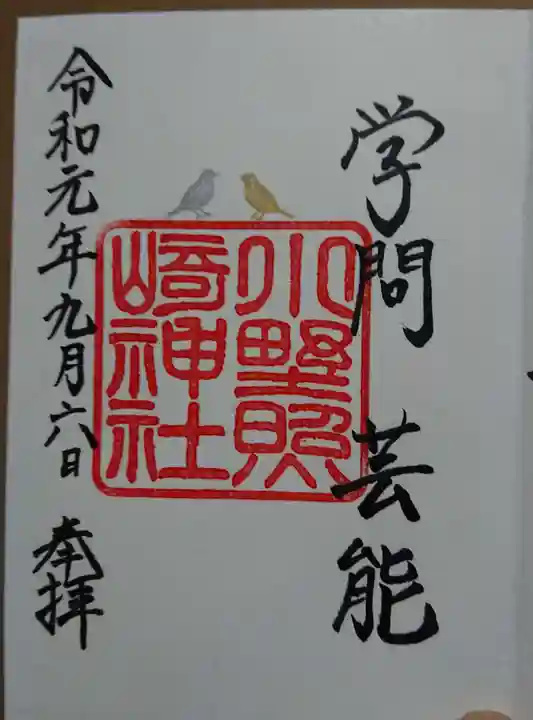 学問 芸能
小野照
崎神社
令和元年九月六日 奉拝